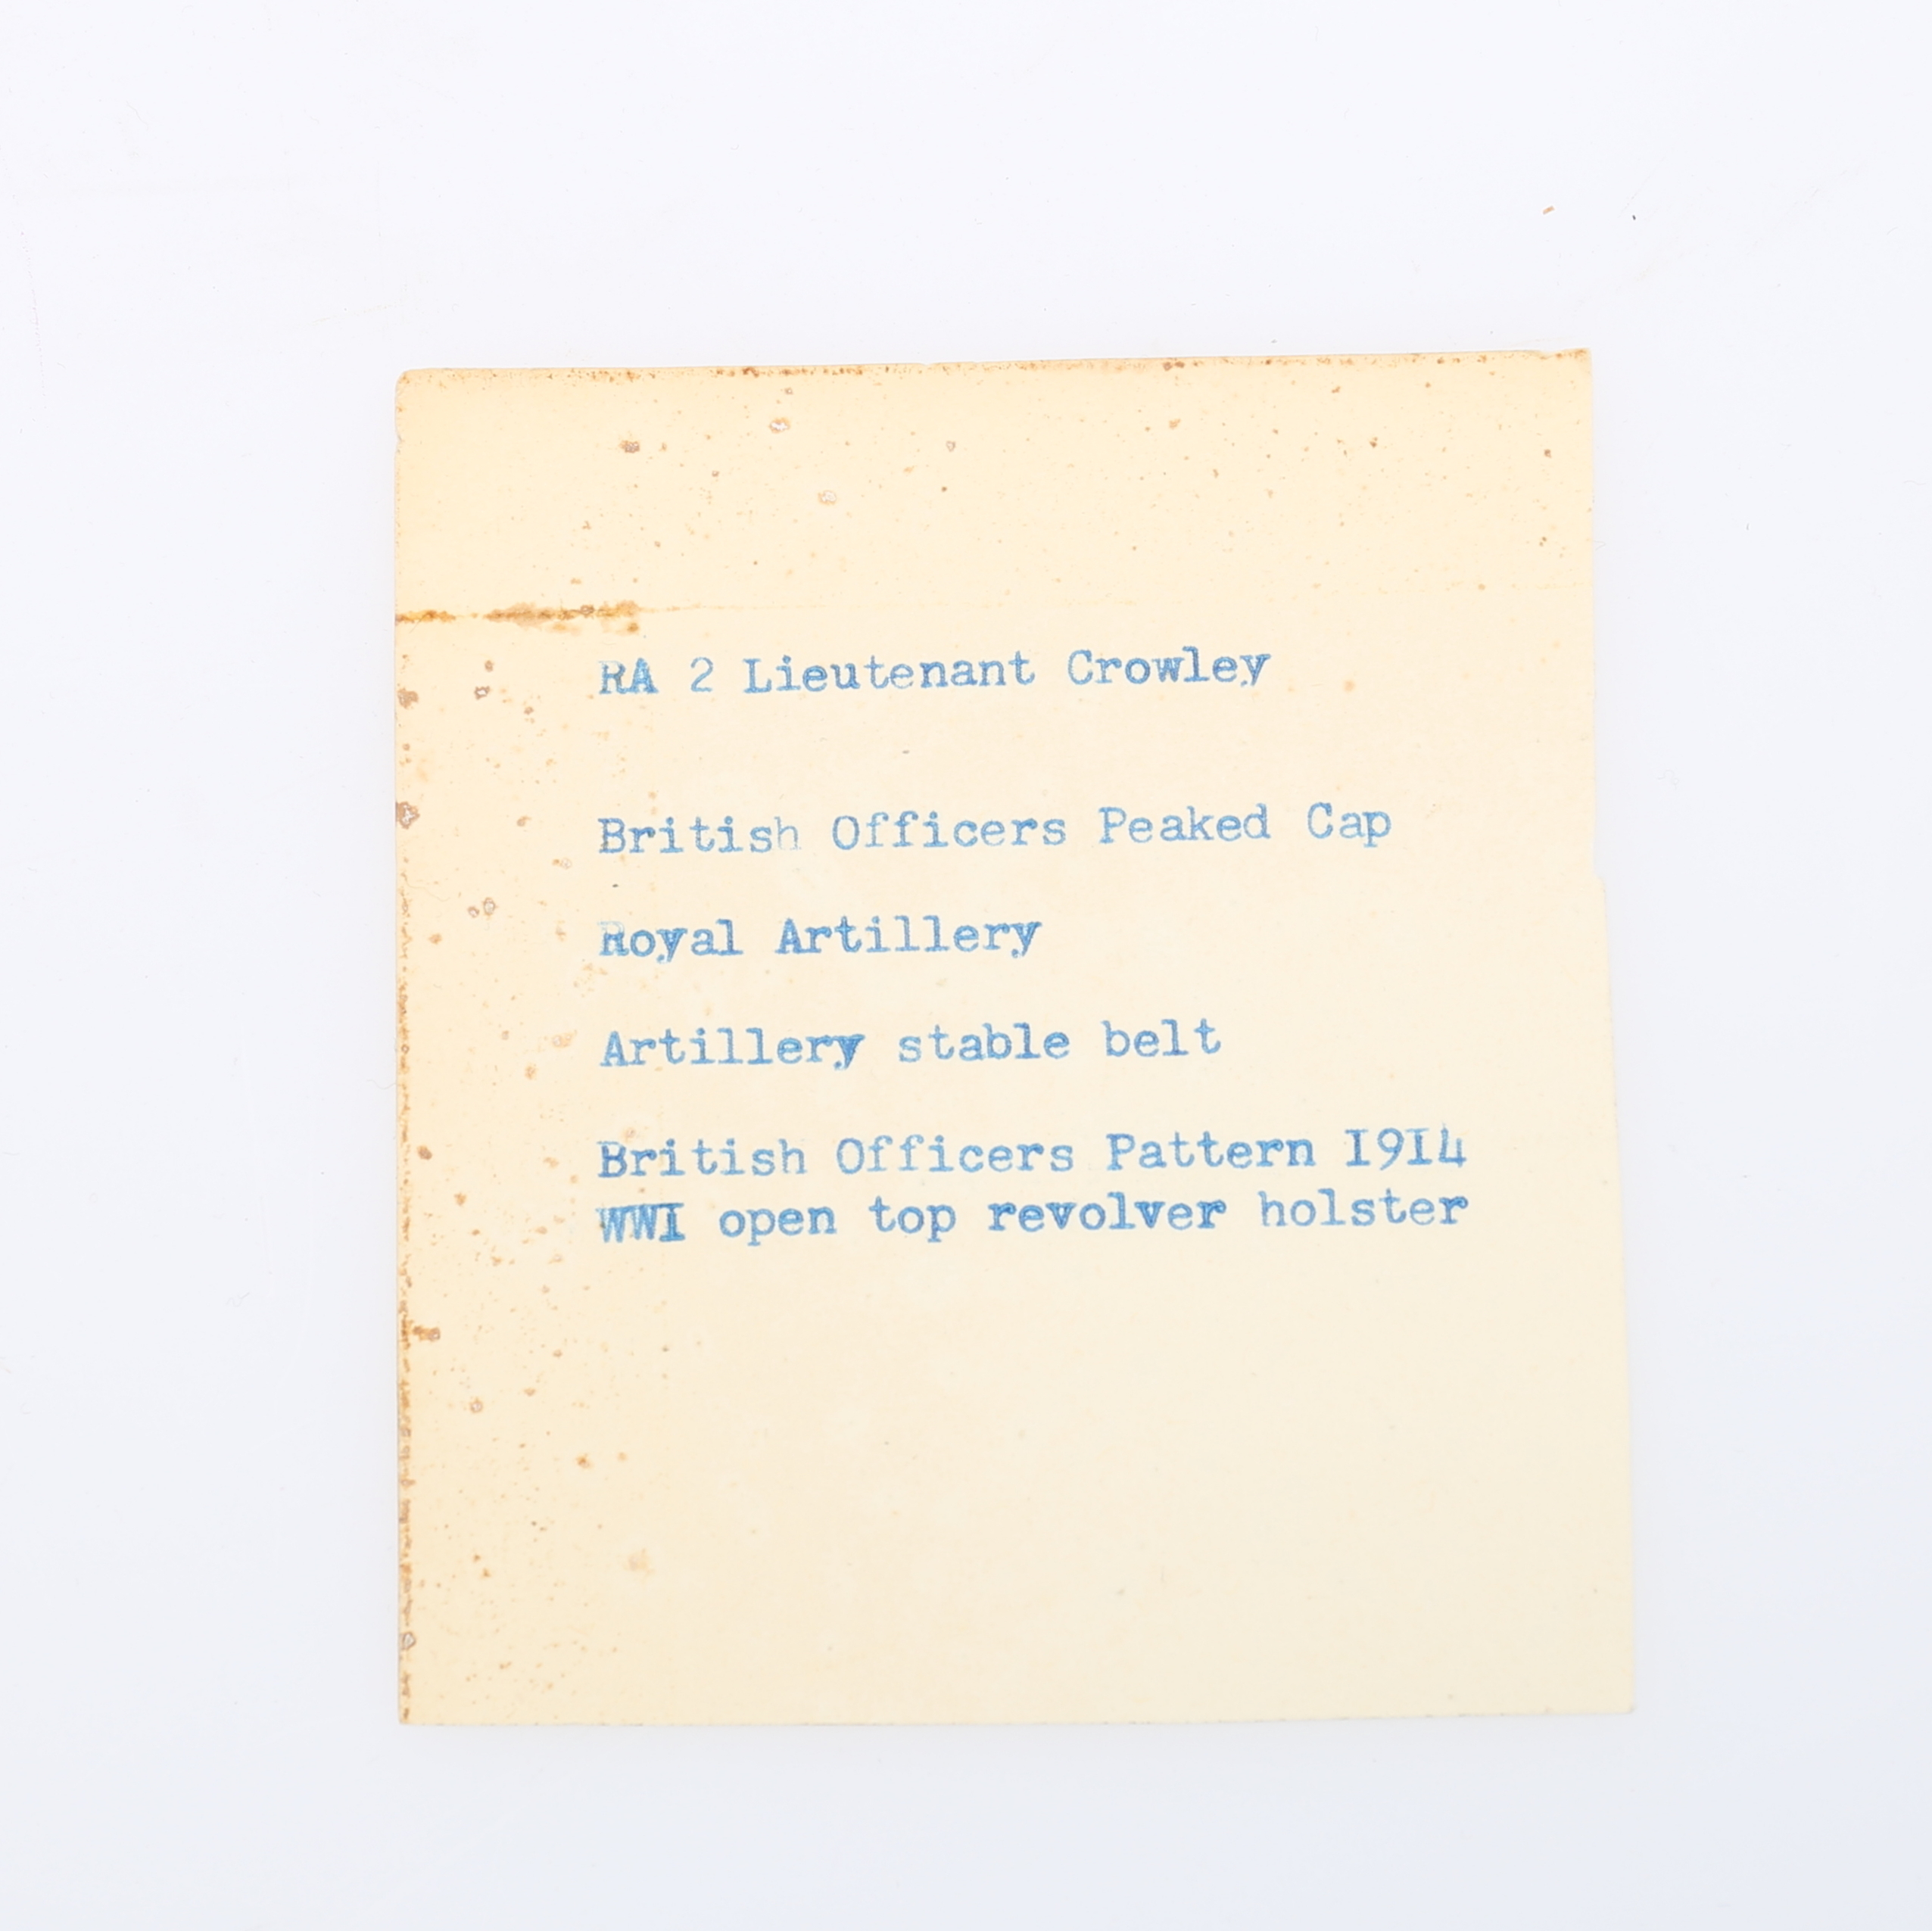 RA 2 Lieutenant Crowley
British Officers Peaked Cap
Royal Artillery
Artillery stable belt
British Officers Pattern I9I4
WWI open top revolver holster